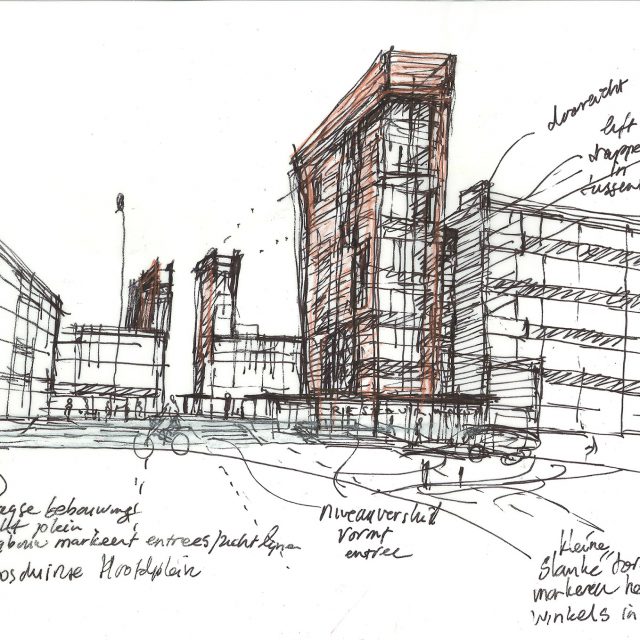 doorzicht
lift
trappe
in
tussen
bebouwings
plein
markeert entrees/zichtlijnen
osduinse Hoofdplein
niveauverschil
vormt
entree
kleine
slanke tor
markeren he
winkels in